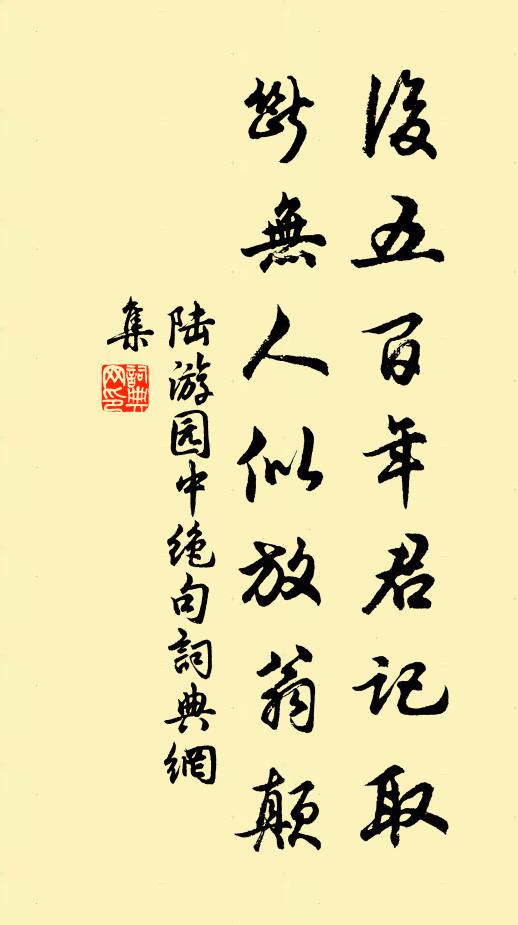 後五百年君記取
斷無人似放翁顛
陆游园中绝句詞典網
集
詞典网印